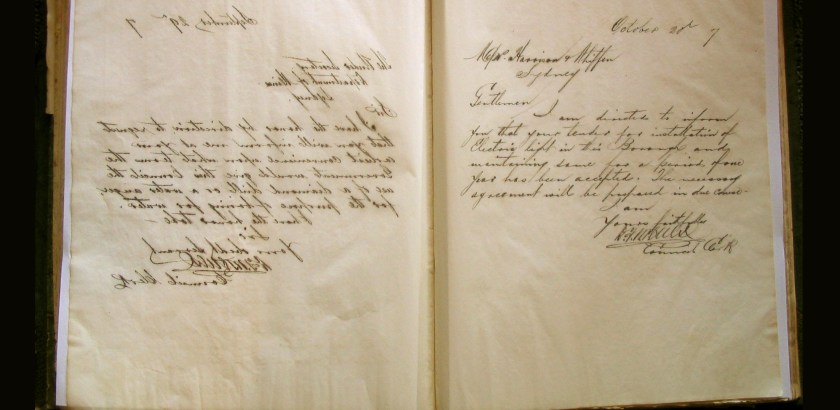 September 29th 7
The Under Secretary
Department of Mines
Sydney
Sir
I have the honor by direction to request
that you will inform me at your
earliest convenience upon what terms the
Government would give this Council the
use of a diamond drill or a water auger
for the purpose of boring for water.
I have the honor to be
Sir
Your servant
Council Clerk
October 20th 7
Messrs Harrison & Whiffen
Sydney
Gentlemen
I am directed to inform
you that your tender for installation of
Electric Light in this Borough and
maintaining same for a period of one
year has been accepted. The necessary
agreement will be prepared in due course
I am
Yours faithfully
Council Clerk